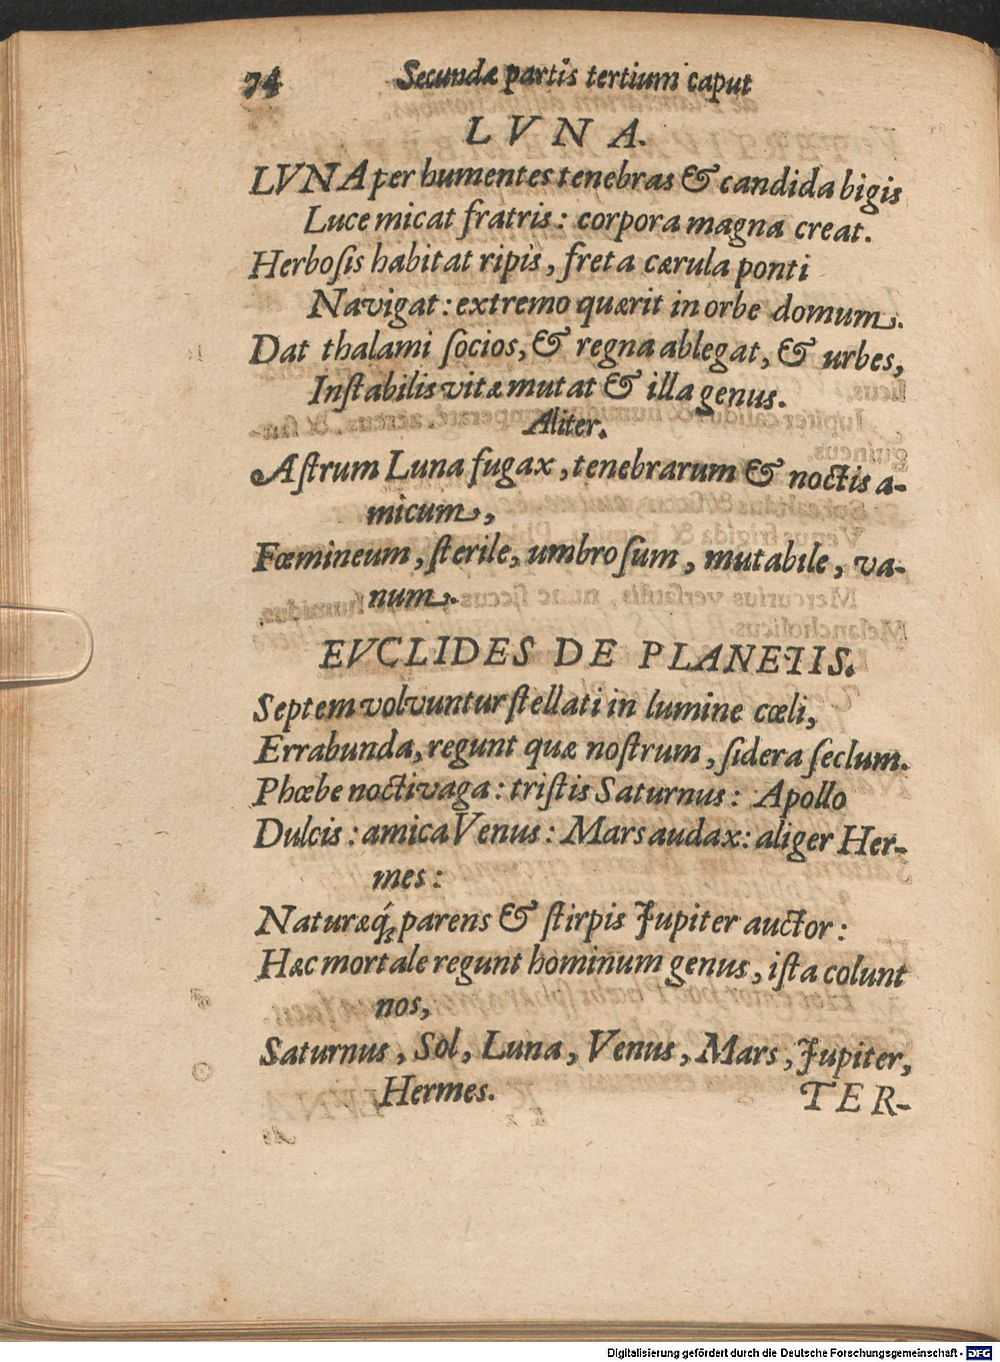 74 Secundæ partis tertium caput
LVNA.
LVNA per humentes tenebras & candida bigis
Luce micat fratris: corpora magna creat.
Herbosis habitat ripis, freta cærula ponti
Navigat: extremo quærit in orbe domum.
Dat thalami socios, & regna ablegat, & urbes,
Instabilis vitæ mutat & illa genus.
Aliter.
Astrum Luna fugax, tenebrarum & noctis a-
micum,
Fœmineum, sterile, umbrosum, mutabile, va-
num.
EVCLIDES DE PLANETIS.
Septem volvuntur stellati in lumine cœli,
Errabunda, regunt quæ nostrum, sidera seclum.
Phœbe noctivaga: tristis Saturnus: Apollo
Dulcis: amica Venus: Mars audax: aliger Her-
mes:
Naturæq́; parens & stirpis Jupiter auctor:
Hæc mortale regunt hominum genus, ista colunt
nos,
Saturnus, Sol, Luna, Venus, Mars, Jupiter,
Hermes.
TER-
Digitalisierung gefördert durch die Deutsche Forschungsgemeinschaft - DFG